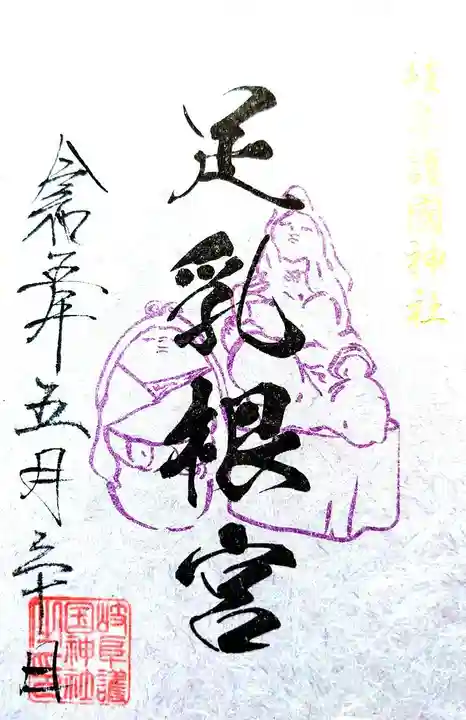 岐阜護國神社
足乳根宮
令和五年五月三十日
岐阜護
国神社